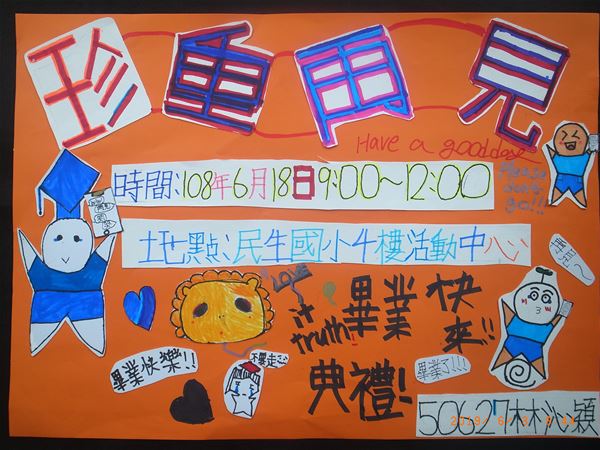 珍重再見
Have a good day
時間:108年6月18日9:00~12:00
Please don't go!!!
地點:民生國小4樓活動中心
LOVE
it
truth!
畢業
典禮!
快來!!
畢業快樂!!
不要走
畢業了!!!
50627林沁穎